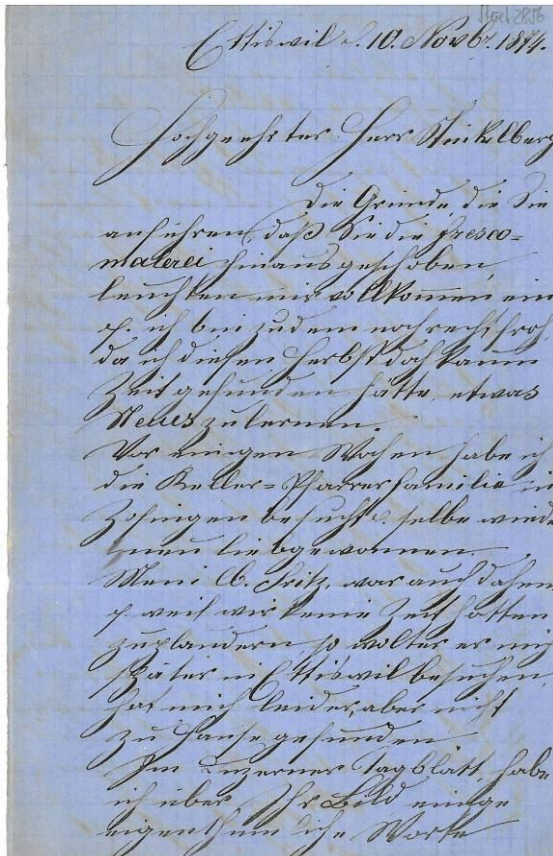 Ettiswil d. 10. Novbr. 1874.
Hochgeehrter Herr Stückelberg
Die Gründe die Sie
anführen, daß Sie die Fresco=
malerei hinausgeschoben,
leuchten mir vollkommen ein
ich bin zudem noch recht froh,
da ich diesen Herbst doch kaum
Zeit gefunden hätte, etwas
Neues zu lernen.
Vor einigen Wochen habe ich
die Keller=Pfarrersfamilie in
Zofingen besucht u. selbe wied
neu liebgewonnen.
Meni lb. Fritz, war auch daheim
weil wir keine Zeit hatten
zu plaudern, so wollte er mich
später in Ettiswil besuchen,
hat mich leider, aber nicht
zu Hause gefunden
Im Luzerner Tagblatt, habe
ich über Ihr Bild einige
eigenthümliche Worte